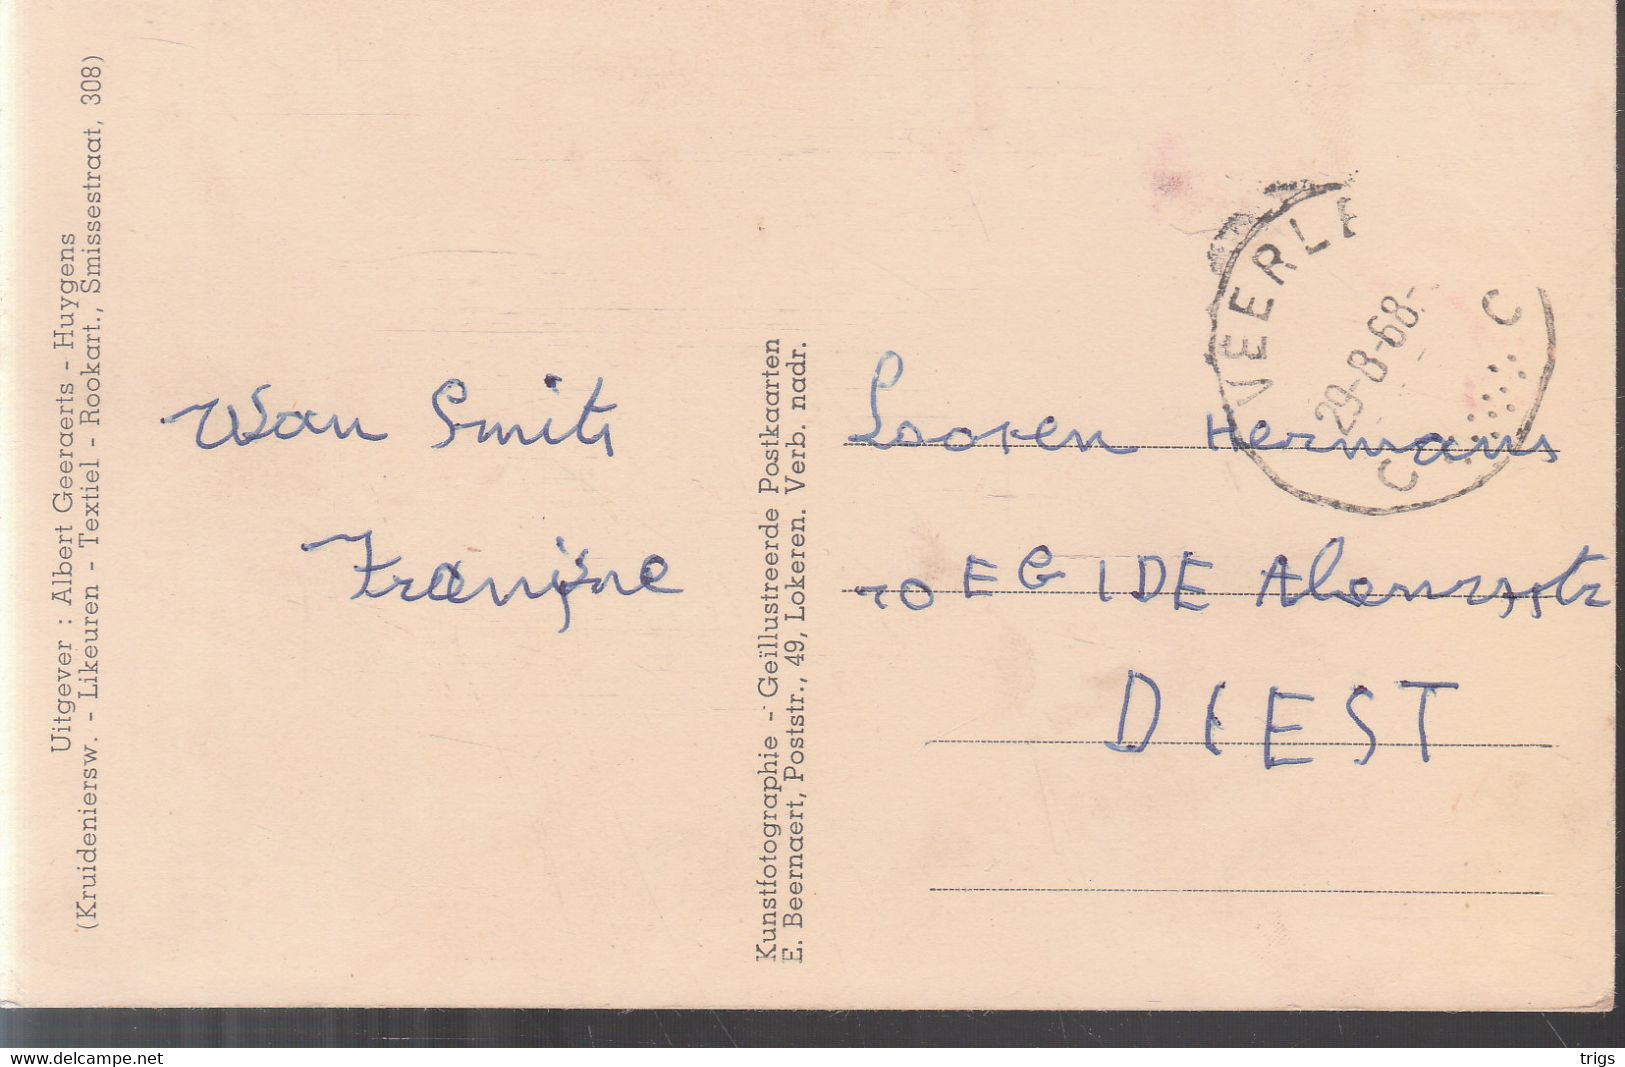 Uitgever : Albert Geeraerts - Huygens
(Kruideniersw. - Likeuren - Textiel - Rookart., Smissestraat, 308)
Smits
Kunstfotographie - Geïllustreerde Postkaarten
E. Beernaert, Poststr., 49, Lokeren. Verb. nadr.
VEERLE
29-8-68-
C C
Hermans
10 EGIDE
DIEST
www.delcampe.net
trigs